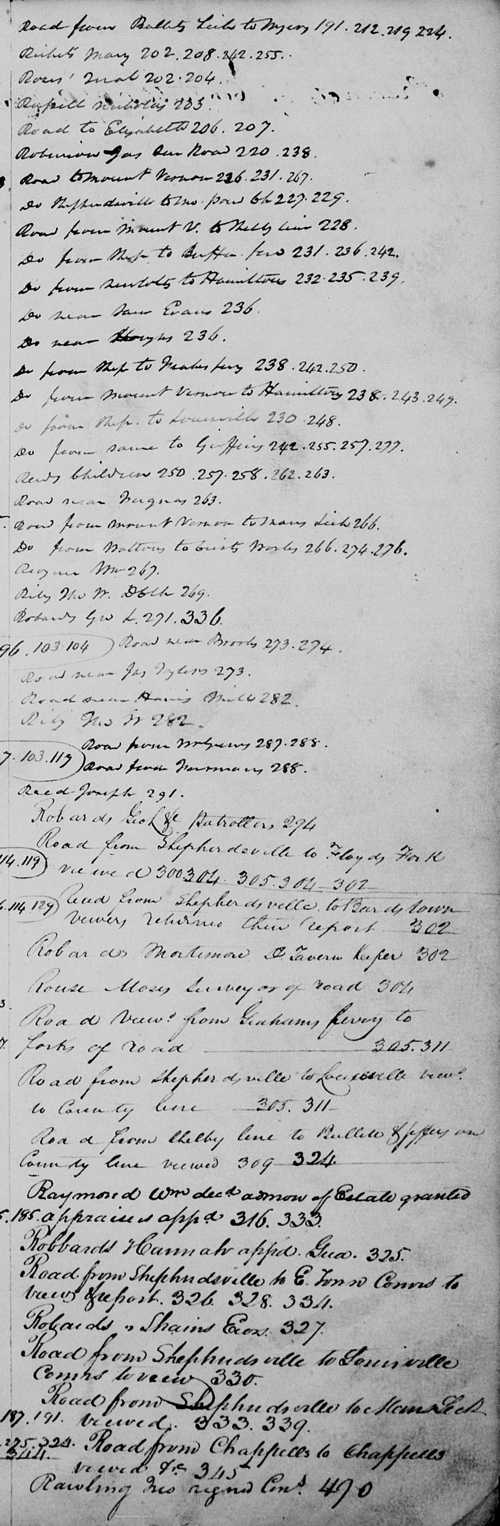 Road from Bullits Lick to Myers 191. 212. 219 224.
Rickets Mary 202. 208. 242. 255.
202. 204.
Russell Nicholas 203
Road to Elizabeth 206. 207.
Robinson Road 220. 238.
Road to Mount Vernon 226. 231. 267.
Do Shepherdsville to 227. 229.
Road from Mount V. to Shelby line 228.
Do from Shep. to 231. 236. 242.
Do from to Hamiltons 232. 235. 239.
Do near Evans 236.
Do near 236.
Do from Shep to 238. 242. 250.
Do from Mount Vernon to Hamiltons 238. 243. 249.
Do from Shep. to Louisville 230. 248.
Do from same to Griffins 242. 255. 257. 277.
Reeds Children 250. 257. 258. 262. 263.
Road near 263.
Road from Mount Vernon to Manns Lick 266.
Do from to Works 266. 274. 276.
267.
Riley 269.
Robards Geo L. 271. 336
96. 103. 104 Road near Brooks 273. 274.
Road near Jas 273.
Road near Harris Mill 282.
Riley Jno W 282.
7. 103. 119 Road from 287. 288.
Road from 288.
Reed Joseph 291.
Robards Geo L Patrollers 294
Road from Shepherdsville to Floyds Fork
114. 119 viewed 300 304. 305. 304 302
114. 129 Road from Shepherdsville to Bardstown
viewers returned their report 302
Robards Mortimore Tavern Keeper 302
Rouse Moses Surveyor of road 304
Road viewd. from Grahams ferry to
forks of road 305. 311
Road from Shepherdsville to Louisville viewd.
to County line 305. 311
Road from Shelby line to Bullitt & Jefferson
County line viewed 309 324
Raymond Wm decd admon of Estate granted
185. appraisers appd 316. 333.
Robbards Hannah appd. Gua. 325.
Road from Shephrdsville to E Town Comrs to
view & report. 326. 328. 334.
Robards v Shains Exor. 327.
Road from Shephrdsville to Louisville
Comrs to view 330.
Road from Shephrdsville to Mans Lick
187. 191. viewed. 333. 339.
275. 324. Road from Chappells to Chappells
344. viewed &c 345
Rawling Jno 470